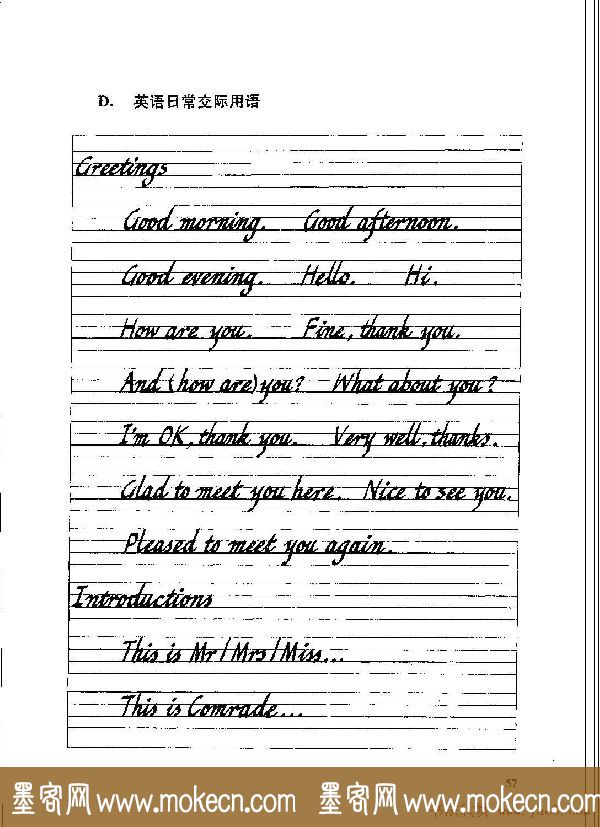 D. 英语日常交际用语
Greetings
Good morning. Good afternoon.
Good evening. Hello. Hi.
How are you. Fine, thank you.
And (how are) you? What about you?
I'm OK, thank you. Very well, thanks.
Glad to meet you here. Nice to see you.
Pleased to meet you again.
Introductions
This is Mr/Mrs/Miss...
This is Comrade...
57
墨客网 www.mokecn.com 墨客网 www.mokecn.com